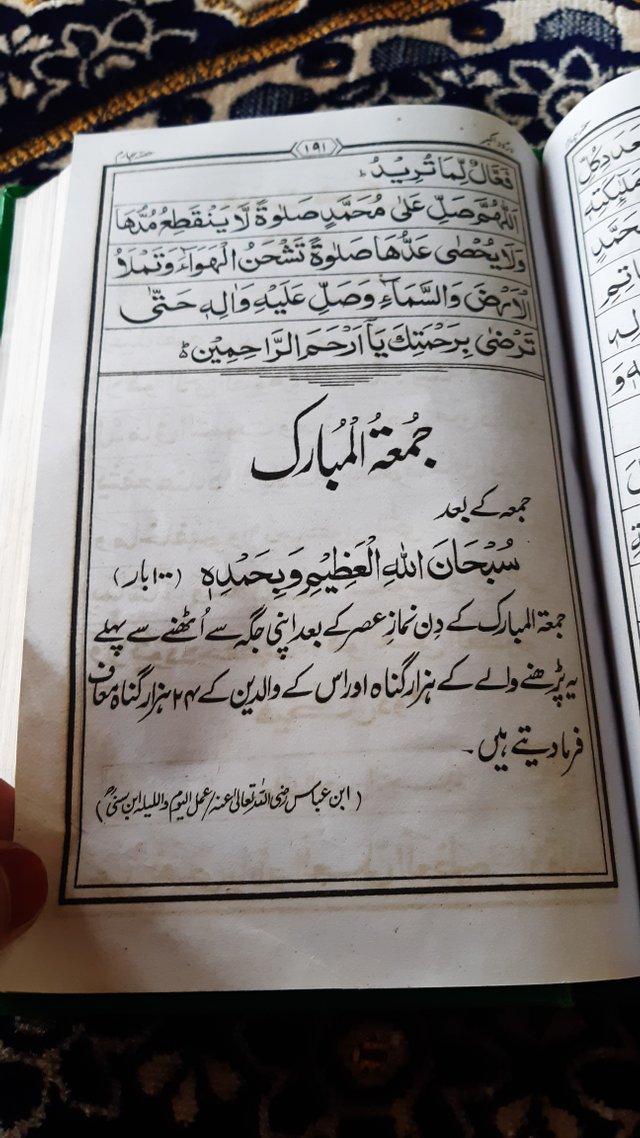 ۱۹۱
فَعَّالٌ لِّمَا تُرِيدُ ط
اَللّٰهُمَّ صَلِّ عَلٰى مُحَمَّدٍ صَلٰوةً لَّا يَنْقَطِعُ مُدُّهَا
وَلَا يُحْصٰى عَدُّهَا صَلٰوةً تَشْحَنُ الْهَوَاءَ وَتَمْلَأُ
الْاَرْضَ وَالسَّمَاءَ وَصَلِّ عَلَيْهِ وَاٰلِهٖ حَتّٰى
تَرْضٰى بِرَحْمَتِكَ يَا اَرْحَمَ الرَّاحِمِيْنَ ط
جُمُعَةُ الْمُبَارَک
جمعہ کے بعد
سُبْحَانَ اللهِ الْعَظِيْمِ وَبِحَمْدِهٖ (۱۰۰ بار)
جمعۃ المبارک کے دِن نمازِ عصر کے بعد اپنی جگہ سے اُٹھنے سے پہلے
یہ پڑھنے والے کے ہزار گناہ اور اس کے والدین کے ۲۴ ہزار گناہ معاف
فرما دیتے ہیں۔
(ابن عباس رضی اللہ تعالیٰ عنہ/عمل الیوم واللیلہ ابن سنیؒ)